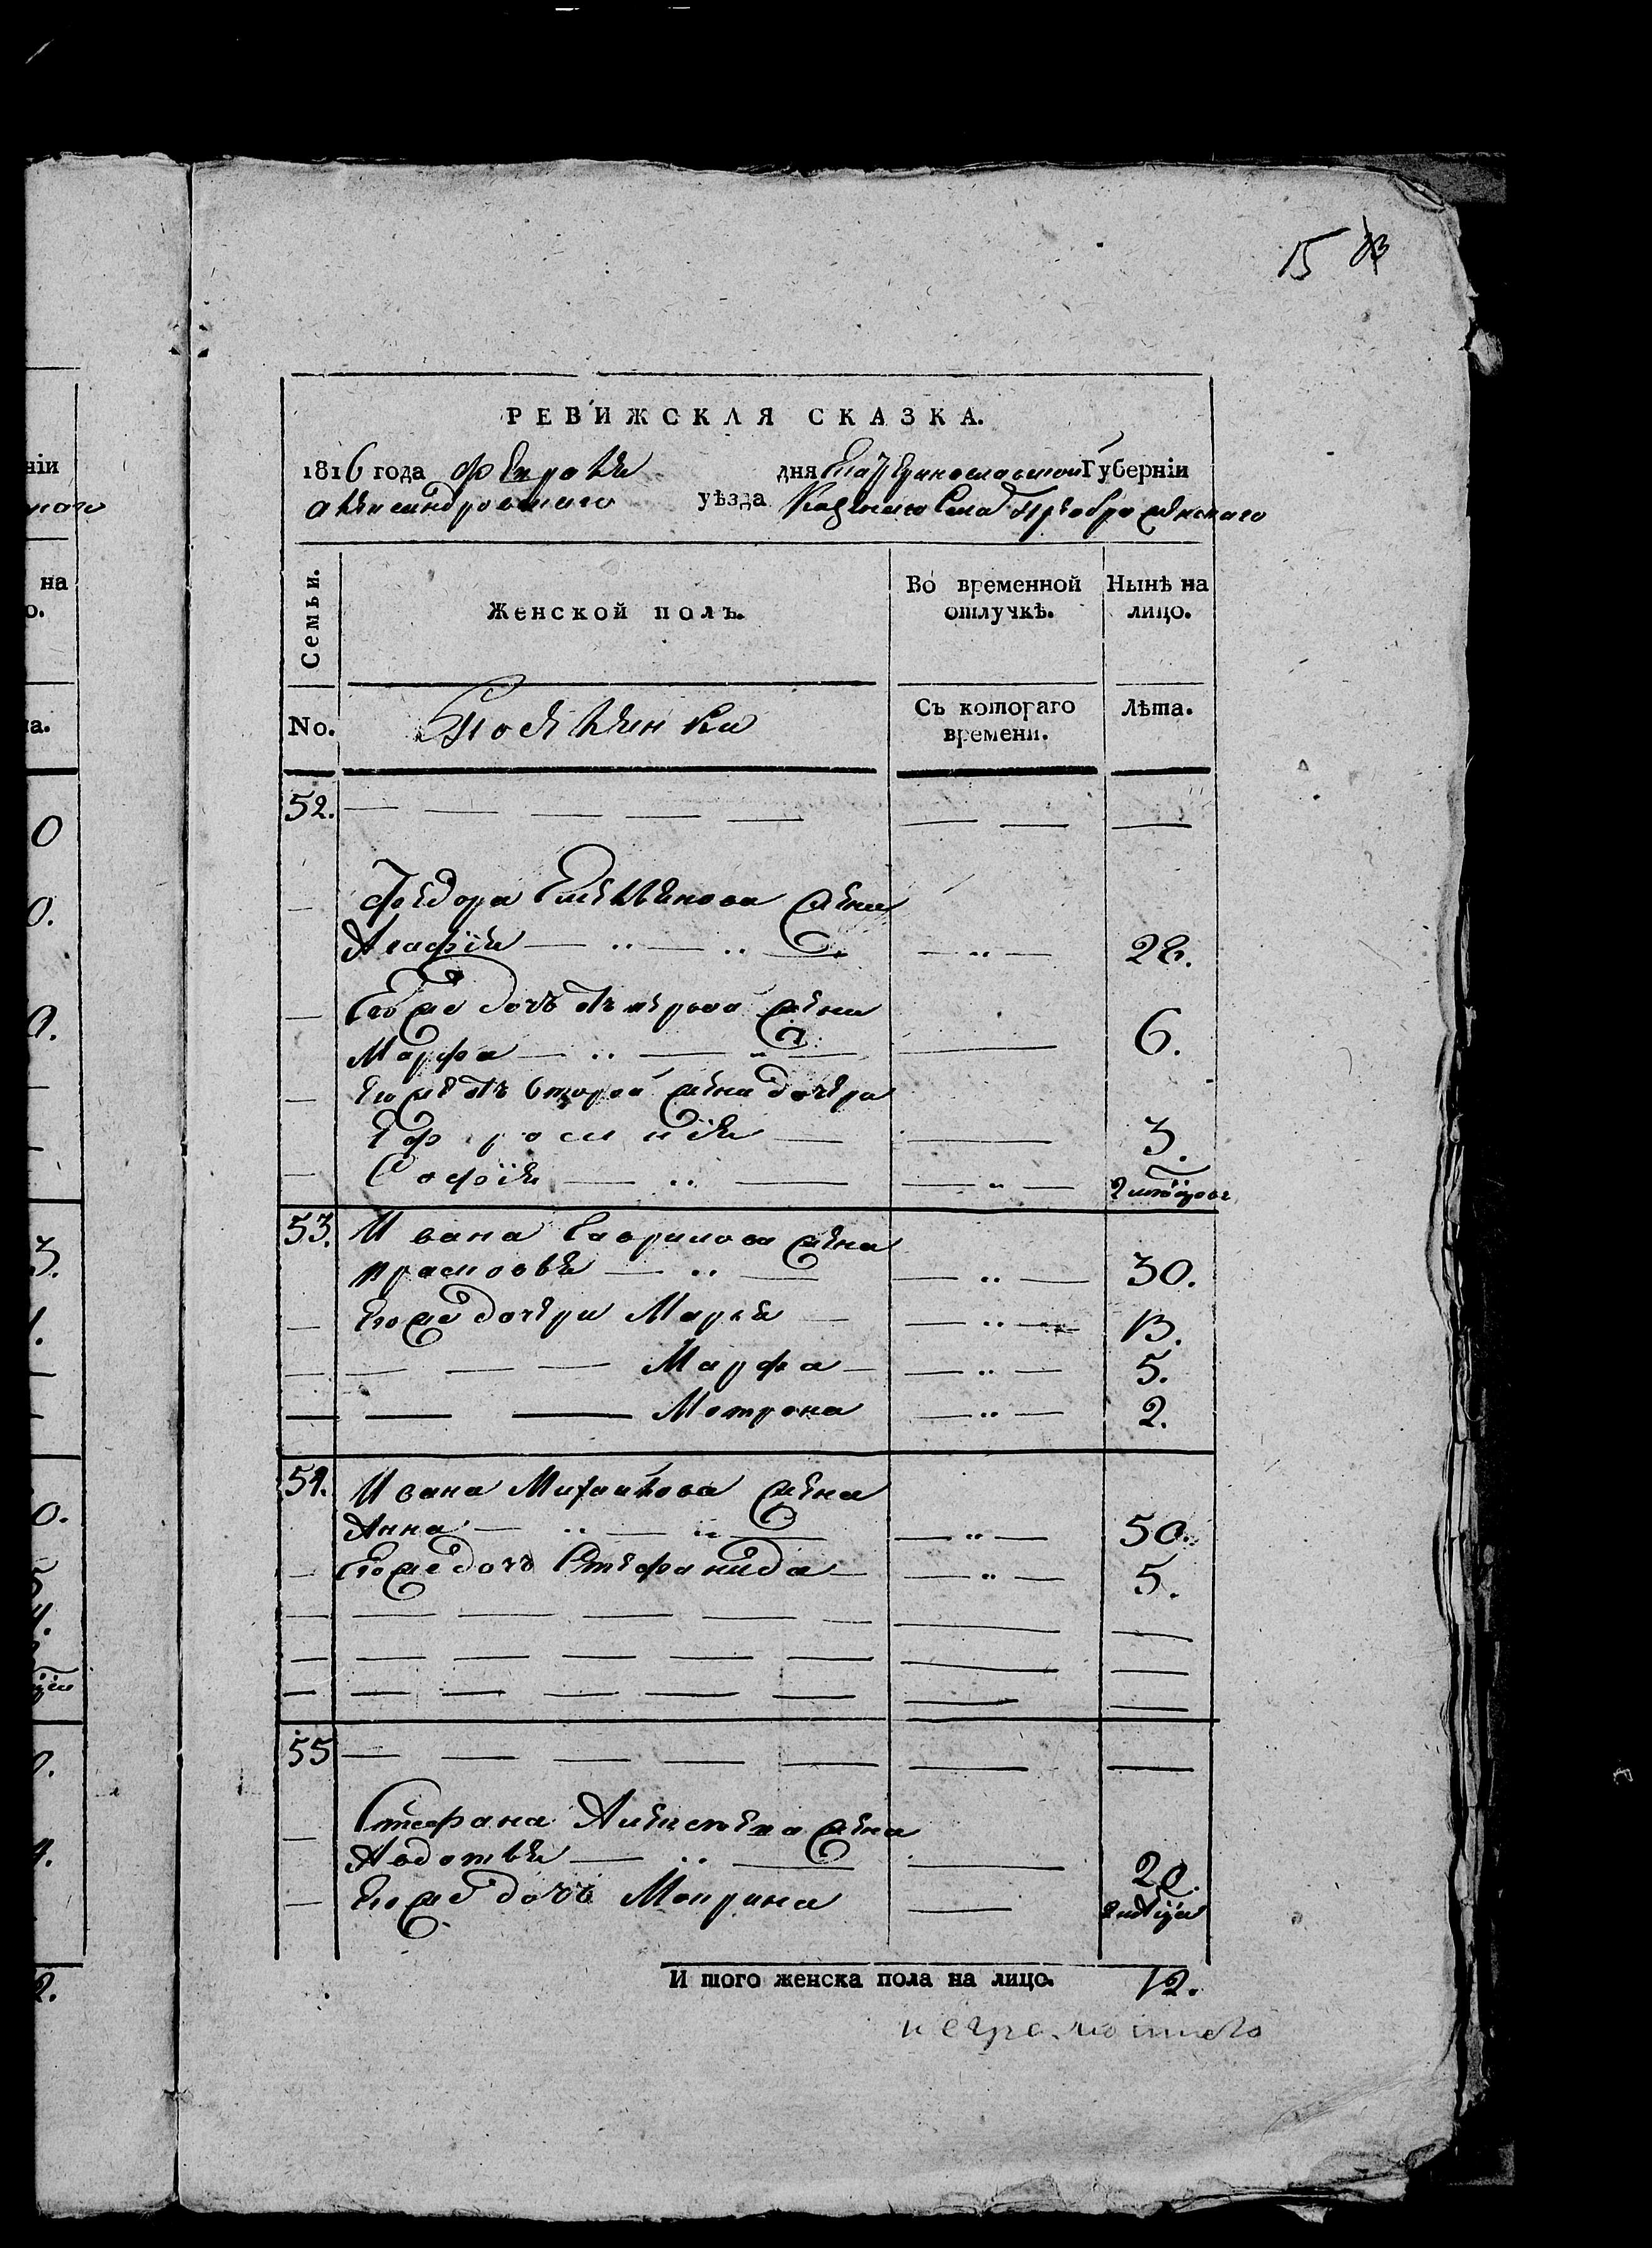 15
РЕВИЖСКАЯ СКАЗКА.
1816 года февраля дня Екатеринославской Губерніи
александровскаго уѣзда Казенного Села Преображенскаго
Семьи. Женской полъ. Во временной отлучкѣ. Нынѣ на лицо.
No. Съ котораго времени. Лѣта.
52.
Феодора Емельянова жена
Агафія 28.
Его же дочь отъ первой жены
Марфа 6.
Его же отъ второй жены дочери
Ефросинія 3.
Софія
53. Ивана Гаврилова жена
прасковья 30.
Его же дочери Марья 13.
Марфа 5.
Мотрона 2.
54. Ивана Михайлова жена
Анна 50.
Его же дочь Стефанида 5.
55
Стефана Алексеева жена
Авдотья 20.
Его же дочь Мокрина
И того женска пола на лицо. 12.